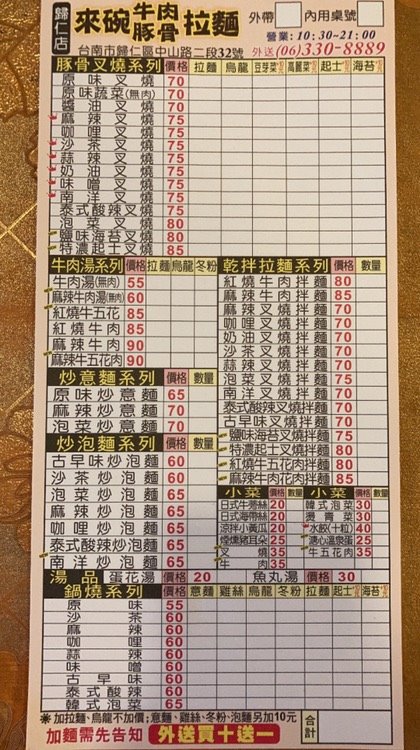 歸仁店
來碗 牛肉 豚骨 拉麵
外帶 內用桌號
營業:10:30~21:00
台南市歸仁區中山路二段32號 外送(06)330-8889
豚骨叉燒系列 價格 拉麵 烏龍 豆芽菜 高麗菜 起士 海苔
原味叉燒 70
原味蔬菜(無肉) 70
醬油叉燒 70
麻辣叉燒 75
咖哩叉燒 75
沙茶叉燒 75
蒜辣叉燒 75
奶油叉燒 75
味噌叉燒 75
南洋叉燒 75
泰式酸辣叉燒 75
泡菜叉燒 80
鹽味海苔叉燒 80
特濃起士叉燒 80
牛肉湯系列 價格 拉麵 烏龍 冬粉
牛肉湯(無肉) 55
麻辣牛肉湯(無肉) 60
紅燒牛五花 85
紅燒牛肉 85
麻辣牛肉 90
麻辣牛五花肉 90
乾拌拉麵系列 價格 數量
紅燒牛肉拌麵 80
麻辣牛肉拌麵 85
麻辣叉燒拌麵 70
咖哩叉燒拌麵 70
奶油叉燒拌麵 70
沙茶叉燒拌麵 70
蒜辣叉燒拌麵 70
泡菜叉燒拌麵 75
南洋叉燒拌麵 70
泰式酸辣叉燒拌麵 70
古早味叉燒拌麵 70
鹽味海苔叉燒拌麵 75
特濃起士叉燒拌麵 75
紅燒牛五花肉拌麵 80
麻辣牛五花肉拌麵 85
炒意麵系列 價格 數量
原味炒意麵 65
麻辣炒意麵 70
沙茶炒意麵 70
炒泡麵系列 價格 數量
古早味炒泡麵 60
沙茶炒泡麵 60
泡菜炒泡麵 65
麻辣炒泡麵 65
咖哩炒泡麵 65
泰式酸辣炒泡麵 65
南洋炒泡麵 65
小菜 價格 數量 小菜 價格 數量
日式牛蒡絲 20 韓式泡菜 30
日式海帶絲 20 燙青菜 30
涼拌小黃瓜 20 水餃(十粒) 40
煙燻豬耳朵 25 溏心溫泉蛋 25
叉燒 35 牛五花肉 35
牛肉 35
湯品 蛋花湯 價格 20 魚丸湯 價格 30
鍋燒系列 價格 意麵 雞絲 烏龍 冬粉 拉麵 起士 海苔
原味 55
沙茶 60
麻辣 60
咖哩 60
蒜辣 60
味噌 60
古早味 60
泰式酸辣 60
韓式泡菜 65
※加拉麵、烏龍不加價;意麵、雞絲、冬粉、泡麵另加10元
加麵需先告知 外送買十送一
合計